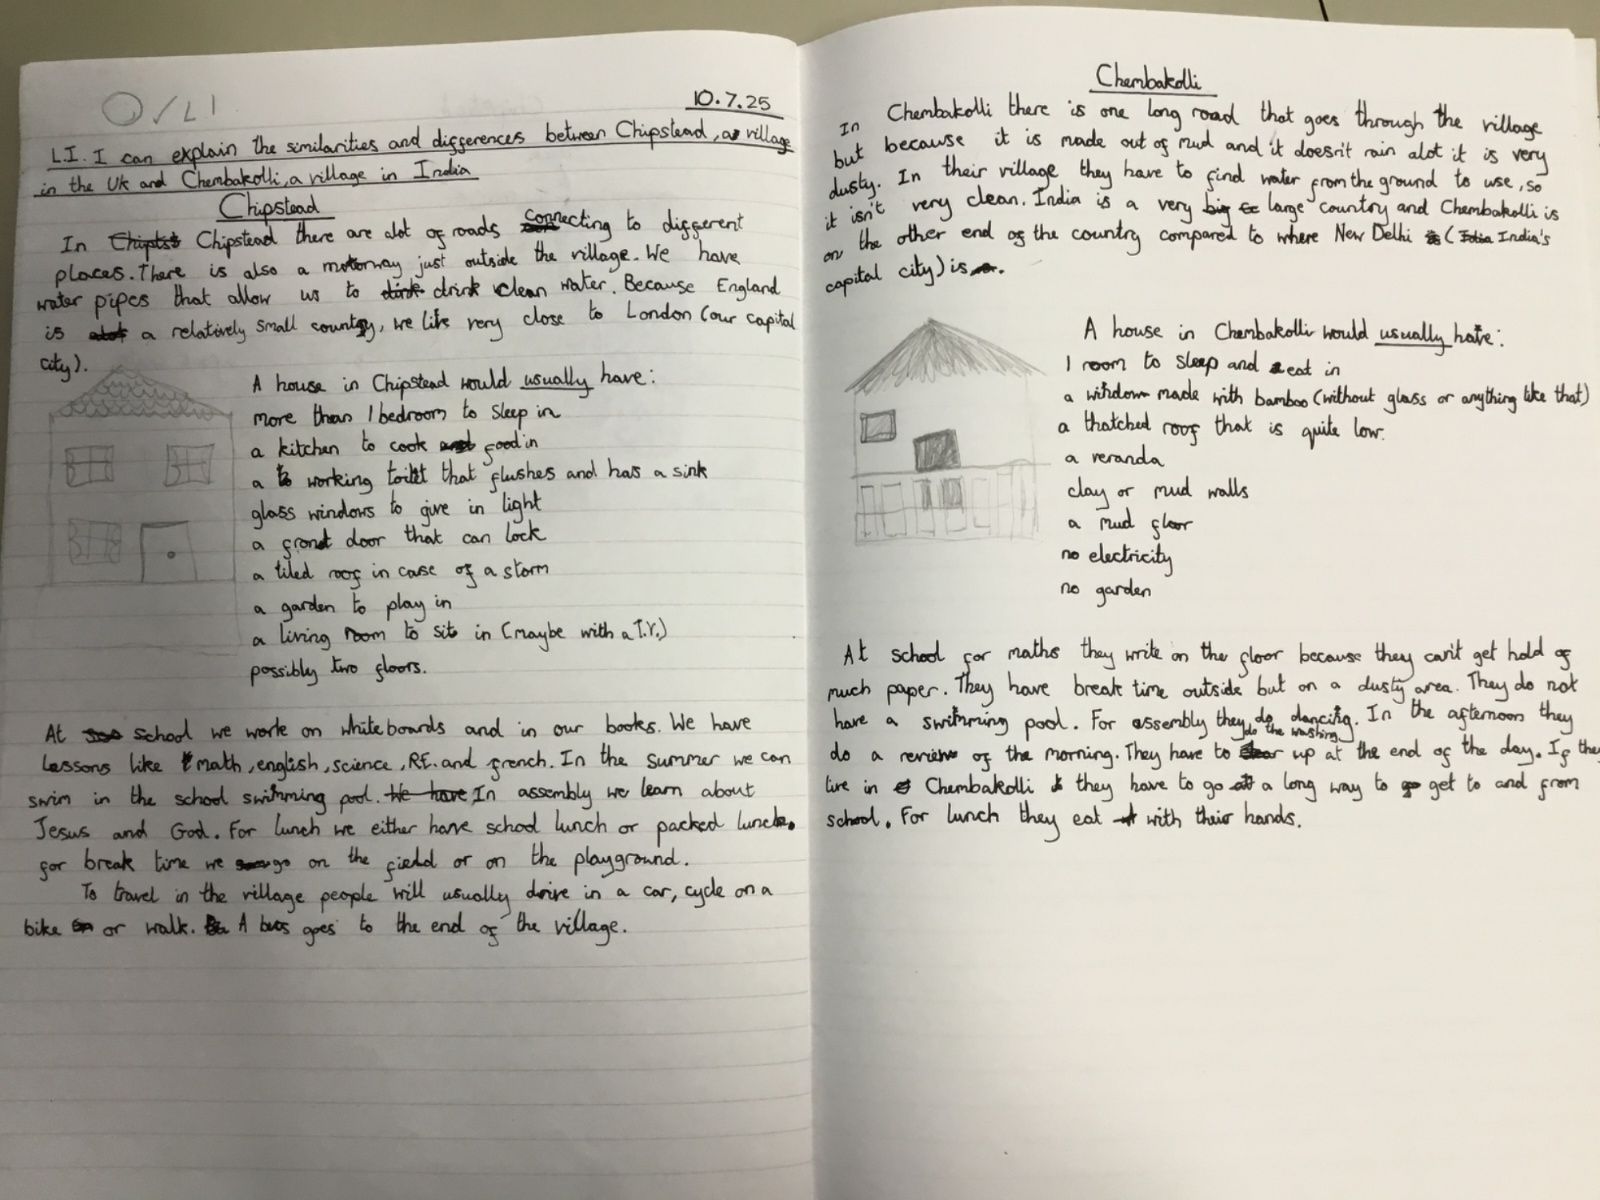 O/LI
10.7.25
L.I. I can explain the similarities and differences between Chipstead, a village
in the Uk and Chembakolli, a village in India
Chipstead
In Chipstead there are alot of roads connecting to different
places. There is also a motorway just outside the village. We have
water pipes that allow us to drink clean water. Because England
is a relatively small country, we live very close to London (our capital
city).
A house in Chipstead would usually have:
more than 1 bedroom to sleep in
a kitchen to cook food in
a working toilet that flushes and has a sink
glass windows to give in light
a front door that can lock
a tiled roof in case of a storm
a garden to play in
a living room to sit in (maybe with a T.V.)
possibly two floors.
At school we work on whiteboards and in our books. We have
lessons like math, english, science, RE. and french. In the summer we can
swim in the school swimming pool. In assembly we learn about
Jesus and God. For lunch we either have school lunch or packed lunch.
for break time we go on the field or on the playground.
To travel in the village people will usually drive in a car, cycle on a
bike or walk. A bus goes to the end of the village.
Chembakolli
In Chembakolli there is one long road that goes through the village
but because it is made out of mud and it doesn't rain alot it is very
dusty. In their village they have to find water from the ground to use, so
it isn't very clean. India is a very large country and Chembakolli is
on the other end of the country compared to where New Delhi (India's
capital city) is.
A house in Chembakolli would usually have:
1 room to sleep and eat in
a window made with bamboo (without glass or anything like that)
a thatched roof that is quite low.
a veranda
clay or mud walls
a mud floor
no electricity
no garden
At school for maths they write on the floor because they can't get hold of
much paper. They have break time outside but on a dusty area. They do not
have a swimming pool. For assembly they do dancing. In the afternoon they
do a review of the morning. They have to do the washing up at the end of the day. If they
live in Chembakolli they have to go a long way to get to and from
school. For lunch they eat with their hands.